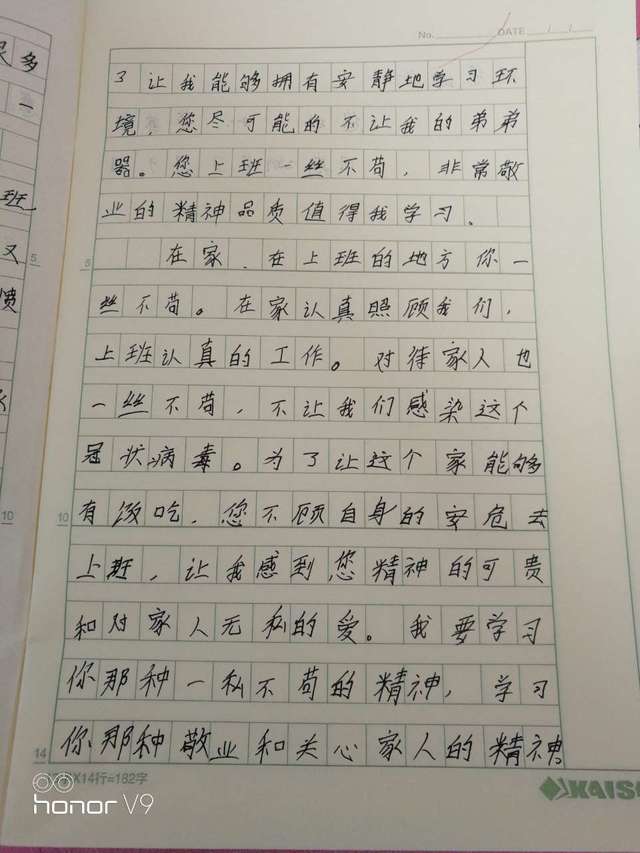 No. DATE / /
了让我能够拥有安静地学习环
境，您尽可能的不让我的弟弟
器。您上班一丝不苟，非常敬
业的精神品质值得我学习、
在家、在上班的地方你一
5
丝不苟。在家认真照顾我们，
上班认真的工作。对待家人也
一丝不苟，不让我们感染这个
冠状病毒。为了让这个家能够
有饭吃，您不顾自身的安危去
10
上班，让我感到您精神的可贵
和对家人无私的爱。我要学习
你那种一私不苟的精神，学习
你那种敬业和关心家人的精神
14
X14行=182字
KAIS
honor V9
尽多
一
班
又
5
愤
10